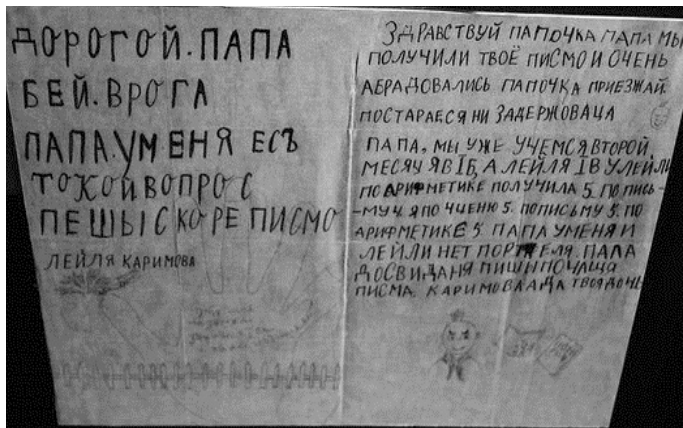 ДОРОГОЙ. ПАПА
БЕЙ. ВРОГА
ПАПА. УМЕНЯ ЕСЪ
ТОКОЙ ВОПРОС
ПЕШЫ СКОРЕ ПИСМО
ЛЕЙЛЯ КАРИМОВА
ЗДРАВСТВУЙ ПАПОЧКА ПАПА МЫ
ПОЛУЧИЛИ ТВОЁ ПИСМО И ОЧЕНЬ
АБРАДОВАЛИСЬ ПАПОЧКА ПРИЕЗЖАЙ.
ПОСТАРАЕСЯ НИ ЗАДЕРЖОВАЦА
ПАПА, МЫ УЖЕ УЧЕМСЯ ВТОРОЙ
МЕСЯЦ Я В I Б, А ЛЕЙЛЯ I В У ЛЕЙЛИ
ПО АРИФМЕТИКЕ ПОЛУЧИЛА 5. ПО ПИСЬ-
-МУ 4 Я ПО ЧИЕНЮ 5. ПО ПИСЬМУ 5. ПО
АРИФМЕТИКЕ 5. ПАПА УМЕНЯ И
ЛЕЙЛИ НЕТ ПОРТФЕЛЯ. ПАПА
ДОСВИДАНЯ ПИШИ ПОЧАЩА
ПИСМА. КАРИМОВА АДА ТВОЯ ДОЧЬ